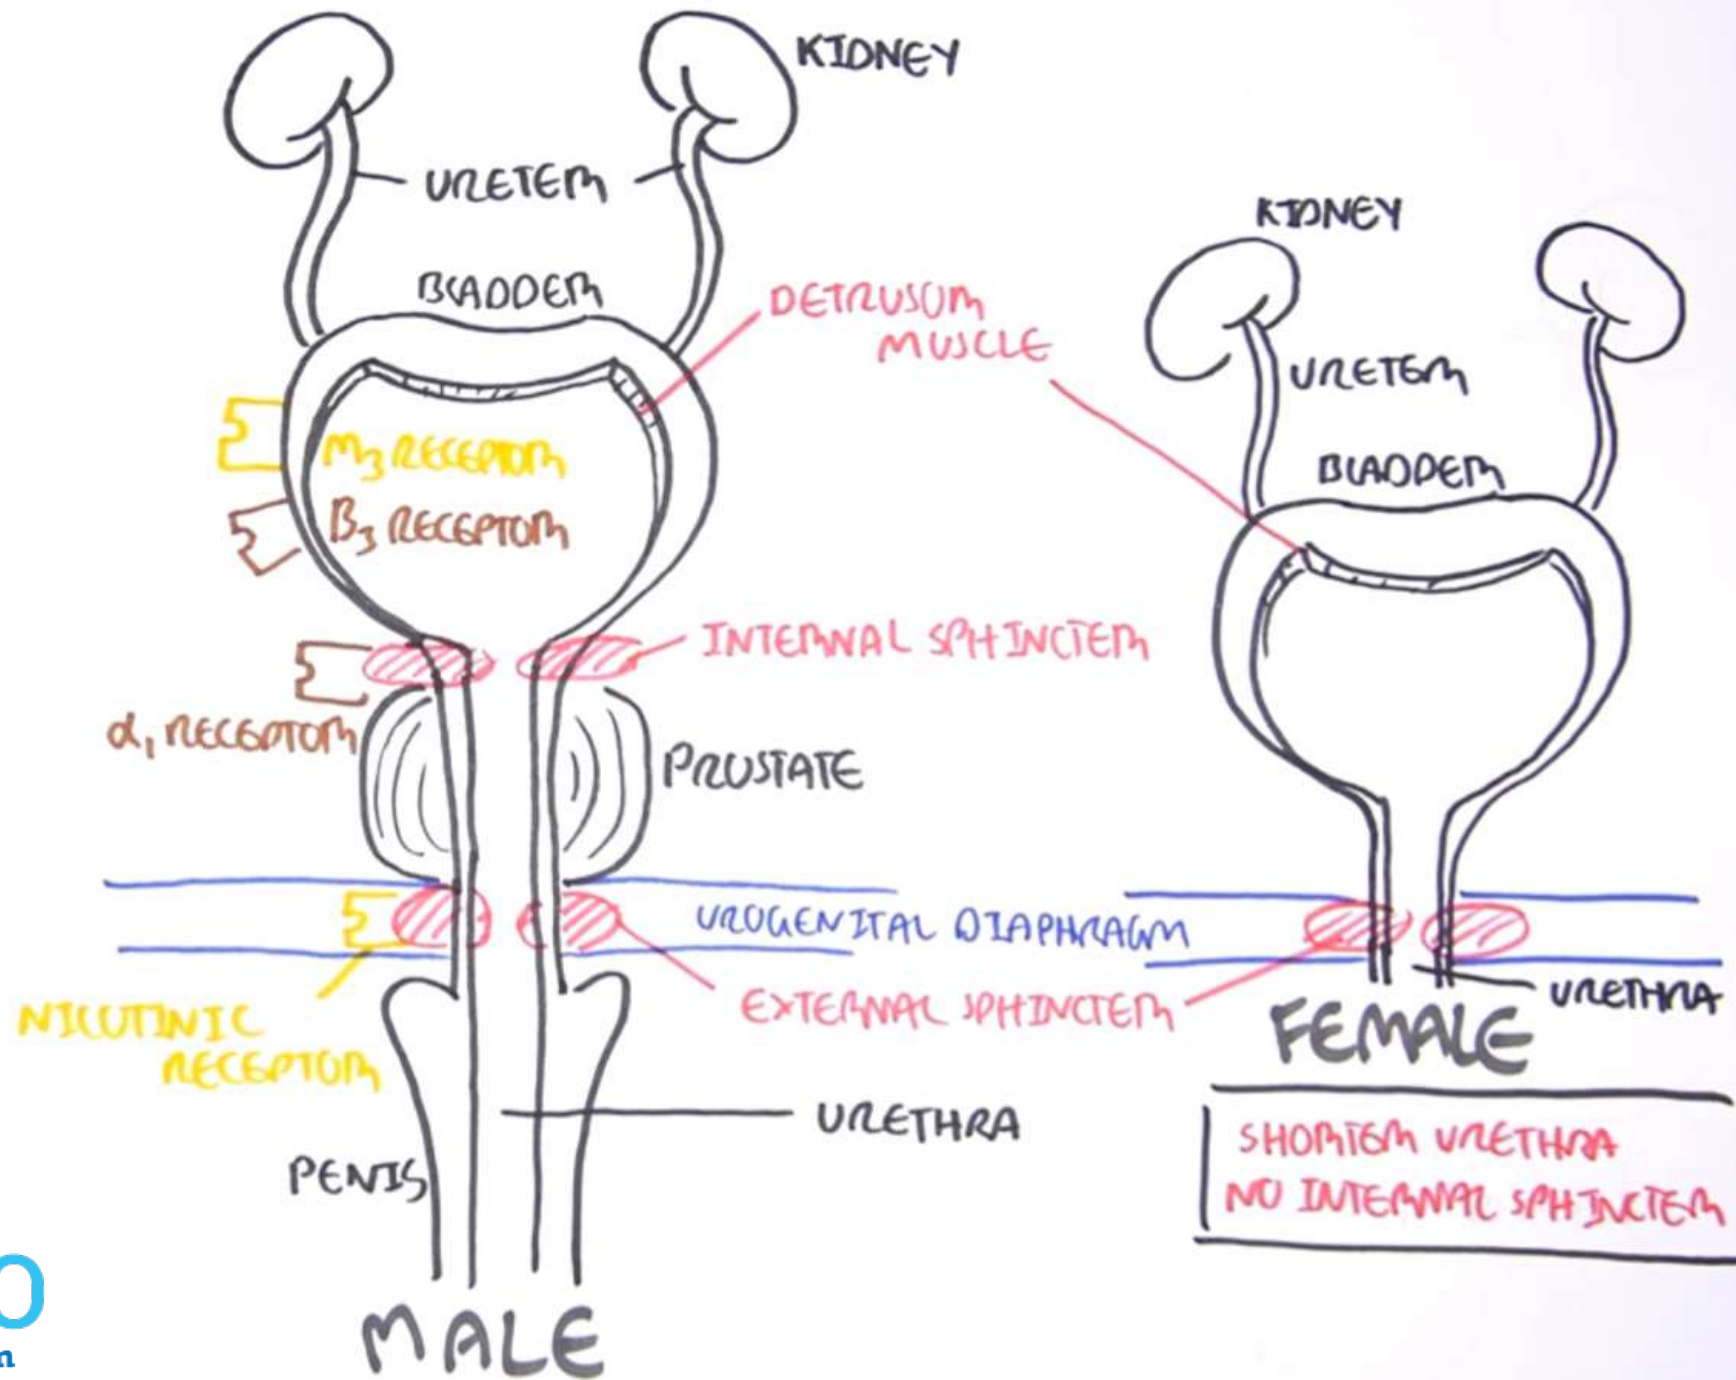 KIDNEY
URETER
BLADDER
DETRUSOR
MUSCLE
M3 RECEPTOR
B3 RECEPTOR
INTERNAL SPHINCTER
α1 RECEPTOR
PROSTATE
UROGENITAL DIAPHRAGM
EXTERNAL SPHINCTER
NICOTINIC
RECEPTOR
URETHRA
PENIS
MALE
KIDNEY
URETER
BLADDER
URETHRA
FEMALE
SHORTER URETHRA
NO INTERNAL SPHINCTER